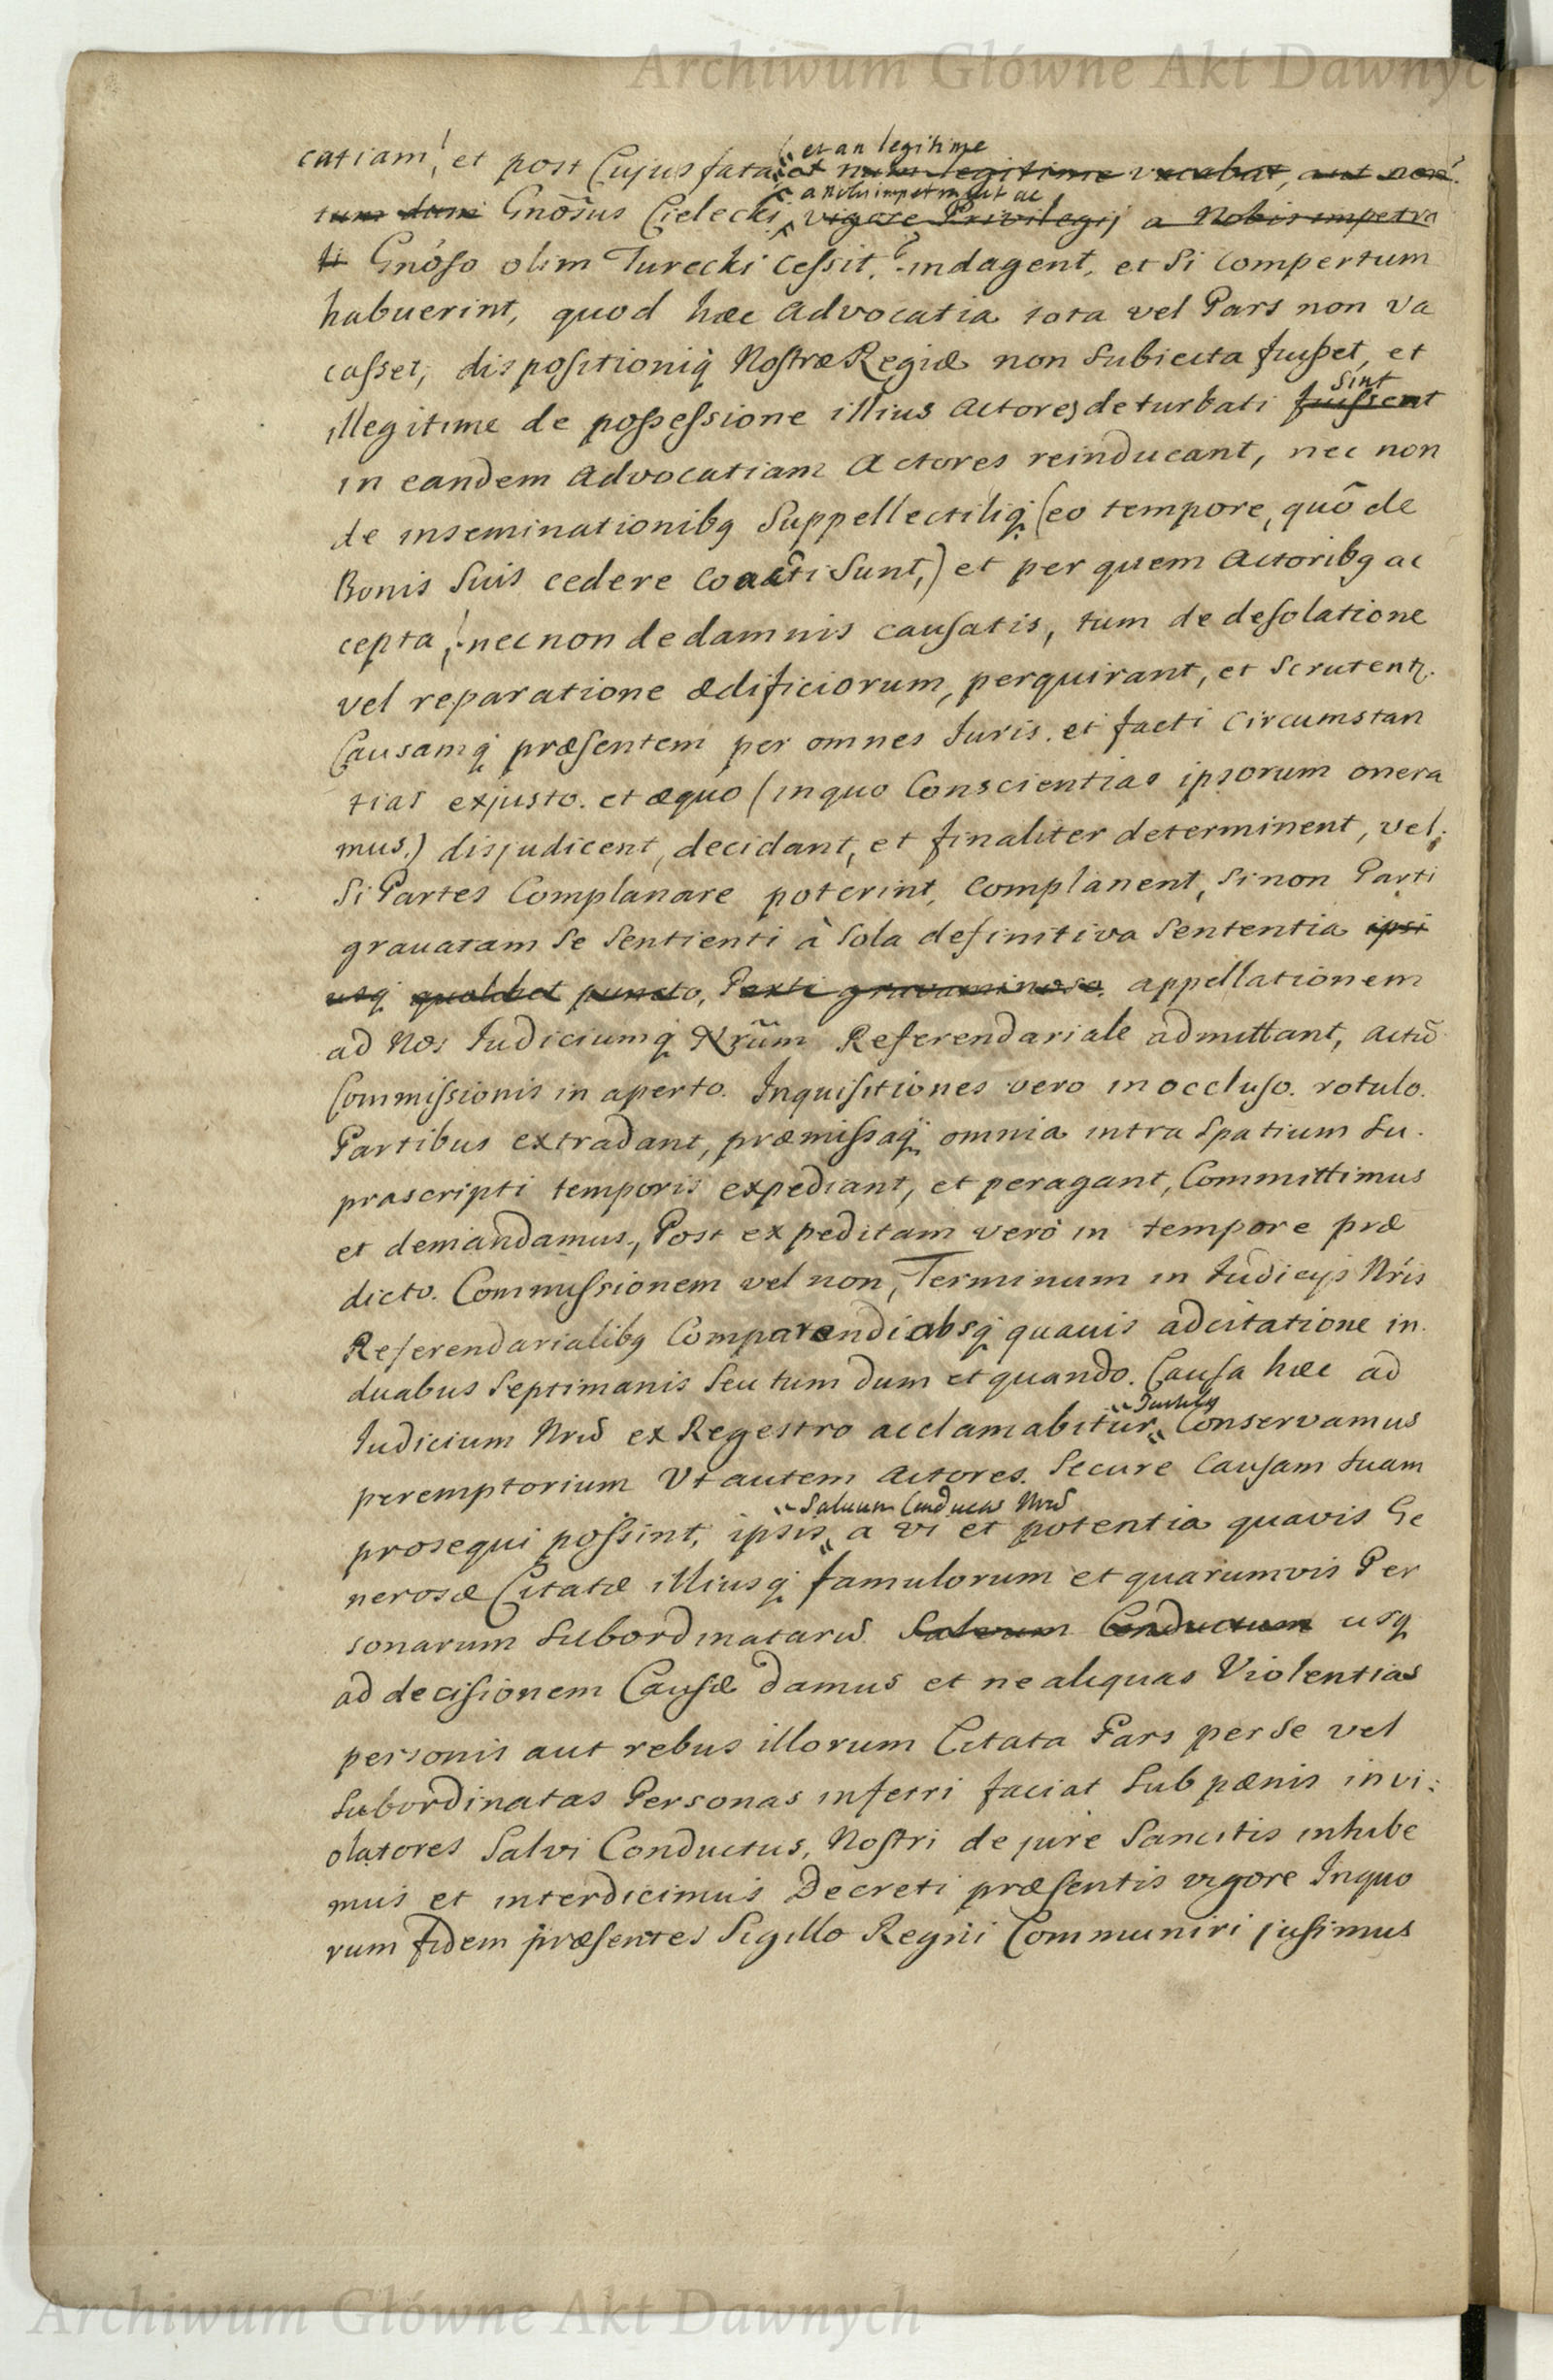 Archiwum Główne Akt Dawnych
et an legitime
catiam, et post Cujus fata et num legitime vacabat, aut non
a Nobis impetraverit ac
tum dam Gnõsus Cielecki, vigore Privilegij a Nobis impetra
ti Gnóso olim Turecki cessit, indagent, et Si Compertum
habuerint, quod hæc Advocatia tota vel Pars non va
casset, dispositioniq Nostræ Regiæ non Subiecta fuisset, et
Sint
illegitime de possessione illius Actores deturbati fuissent
in eandem Advocatiam Actores reinducant, nec non
de inseminationibq Suppellectiliq (eo tempore, quô de
Bonis Suis cedere Coacti Sunt,) et per quem Actoribq ac
cepta, nec non de damnis causatis, tum de desolatione
vel reparatione ædificiorum, perquirant, et Scrutentr.
Causamq præsentem per omnes Juris. et facti circumstan
tias exjusto. et æquo (inquo Conscientias ipsorum onera
mus.) disjudicent, decidant, et finaliter determinent, vel,
Si Partes Complanare poterint, Complanent, Sinon Parti
gravatam Se Sentienti à Sola definitiva Sententia ipsi
usq quolibet puncto, Parti gravaminoso, appellationem
ad Nos Judiciumq Nrũm Referendariale admittant, actũ
Commissionis in aperto. Inquisitiones vero in occluso. rotulo.
Partibus extradant, præmissaq omnia intra Spatium Su.
prascripti temporis expediant, et peragant, Committimus
et demandamus., Post expeditam verò in tempore præ
dicto. Commissionem vel non, Terminum in Judicijs Nris
Referendarialibq Comparendi absq quavis adcitatione in.
duabus Septimanis Seu tum dum et quando. Causa hæc ad
Partibq
Judicium Nrũ ex Regestro acclamabitur, Conservamus
peremptorium Ut autem Actores. Secure Causam Suam
Salvum Conductũ Nrũ
prosequi possint, ipsis, a vi et potentia quavis Ge
nerosæ Citatæ illiusq famulorum et quarumvis Per
sonarum Subordinatarũ Salvum Conductum usq
ad decisionem Causæ damus et ne aliquas Violentias
personis aut rebus illorum Citata Pars per Se vel
Subordinatas Personas inferri faciat Sub pænis in vi:
olatores Salvi Conductus, Nostri de jure Sancitis inhibe
mus et interdicimus Decreti præsentis vigore Inquo
rum fidem præsentes Sigillo Regni Communiri jussimus
Archiwum Główne Akt Dawnych